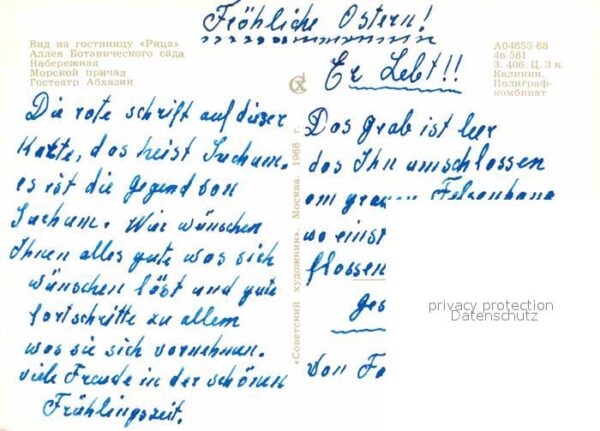 Fröhliche Ostern!
Вид на гостиницу «Рица»
Аллея Ботанического сада
Набережная
Морской причал
Гостеатр Абхазии
А04853-68
4в-581
З. 406. Ц. 3 к.
Калинин.
Полиграф-
комбинат
Er Lebt!!
Die rote schrift auf dieser
Karte, das heist Suchum.
es ist die gegend von
Suchum. Wir wünschen
Ihnen alles gute was sich
wünschen löst und gute
fortschritte zu allem
was sie sich vornehmen.
viele Freude in der schönen
Frühlingszeit.
«Советский художник». Москва. 1968 г.
Das grab ist leer
das Ihn umschlossen
om grauen Felsenhang
wo einst
flossen
ges
Von Fa
privacy protection
Datenschutz